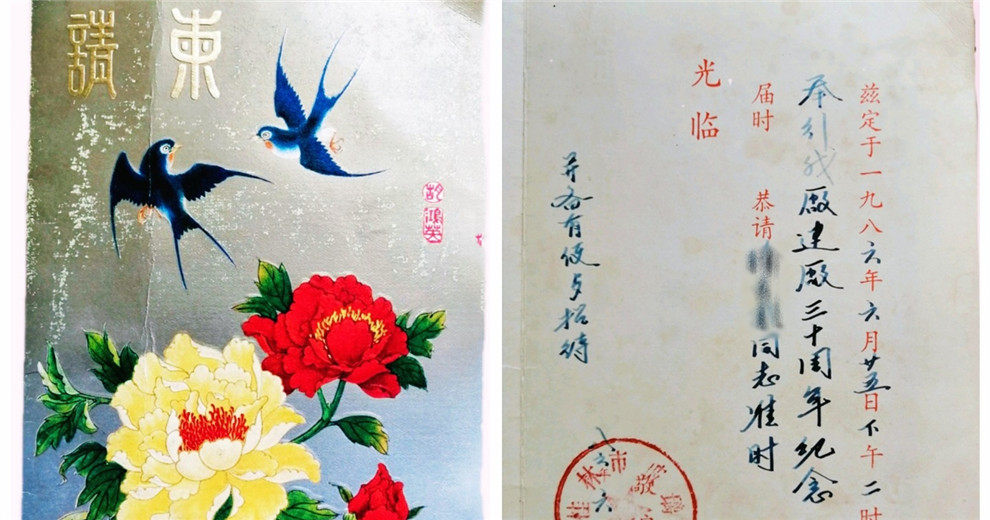 請柬
兹定于一九八六年六月廿五日下午二时
举行我廠建廠三十周年纪念
届时 恭请 同志准时
光临
并备有便歺招待
八六 六
桂林市 敬